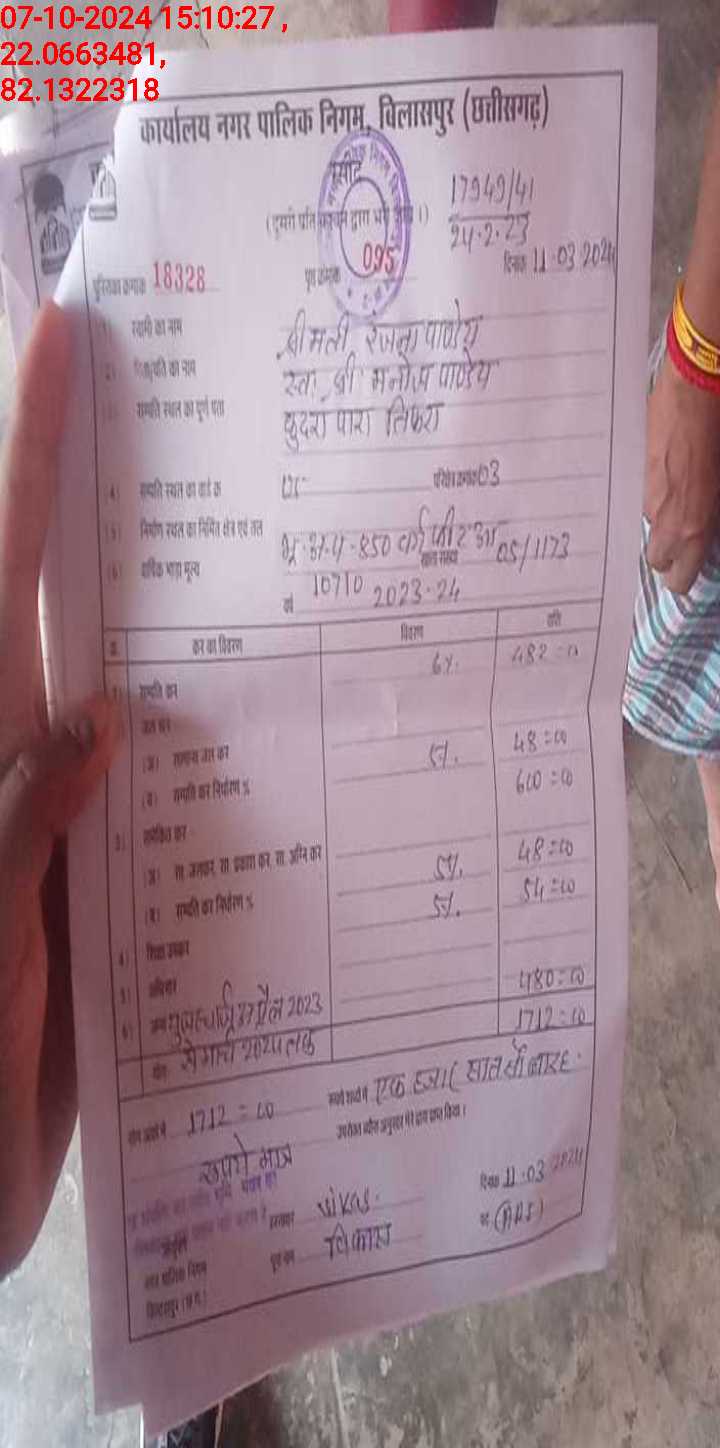 07-10-2024 15:10:27 ,
22.0663481,
82.1322318
कार्यालय नगर पालिक निगम, बिलासपुर (छत्तीसगढ़)
रसीद
17949/41
24.2.23
दिनांक 11.03 2024
पुस्तिका क्रमांक 18328 पृष्ठ क्रमांक 095
1) स्वामी का नाम श्रीमती रंजना पाण्डेय
2) पिता/पति का नाम स्व. श्री मनोज पाण्डेय
3) सम्पत्ति स्थल का पूर्ण पता कुदरा पारा तिफरा
4) सम्पत्ति स्थल का वार्ड क्र. 03
5) निर्माण स्थल का निर्मित क्षेत्र एवं तल 850 05/1173
6) वार्षिक भाड़ा मूल्य 10710 वर्ष 2023-24
क्र. कर का विवरण विवरण राशि
1) सम्पत्ति कर 6%. 482=00
जल कर
(अ) सामान्य जल कर 48=00
(ब) सम्पत्ति कर निर्धारण % 600=00
3) समेकित कर
(अ) सा. जलकर, सा. प्रकाश कर, सा. अग्नि कर 5%. 48=00
(ब) सम्पत्ति कर निर्धारण % 5%. 54=00
4) शिक्षा उपकर
5) अधिभार 480=00
6) अन्य अप्रैल 2023
से मार्च 2024 तक 1712=00
योग
योग अंकों में 1712=00 रूपये शब्दों में एक हजार सात सौ बारह
रूपये मात्र
दिनांक 11.03 2024
हस्ताक्षर vikas.
पूरा नाम विकास
पद (ARI)
नगर पालिक निगम
बिलासपुर (छ.ग.)